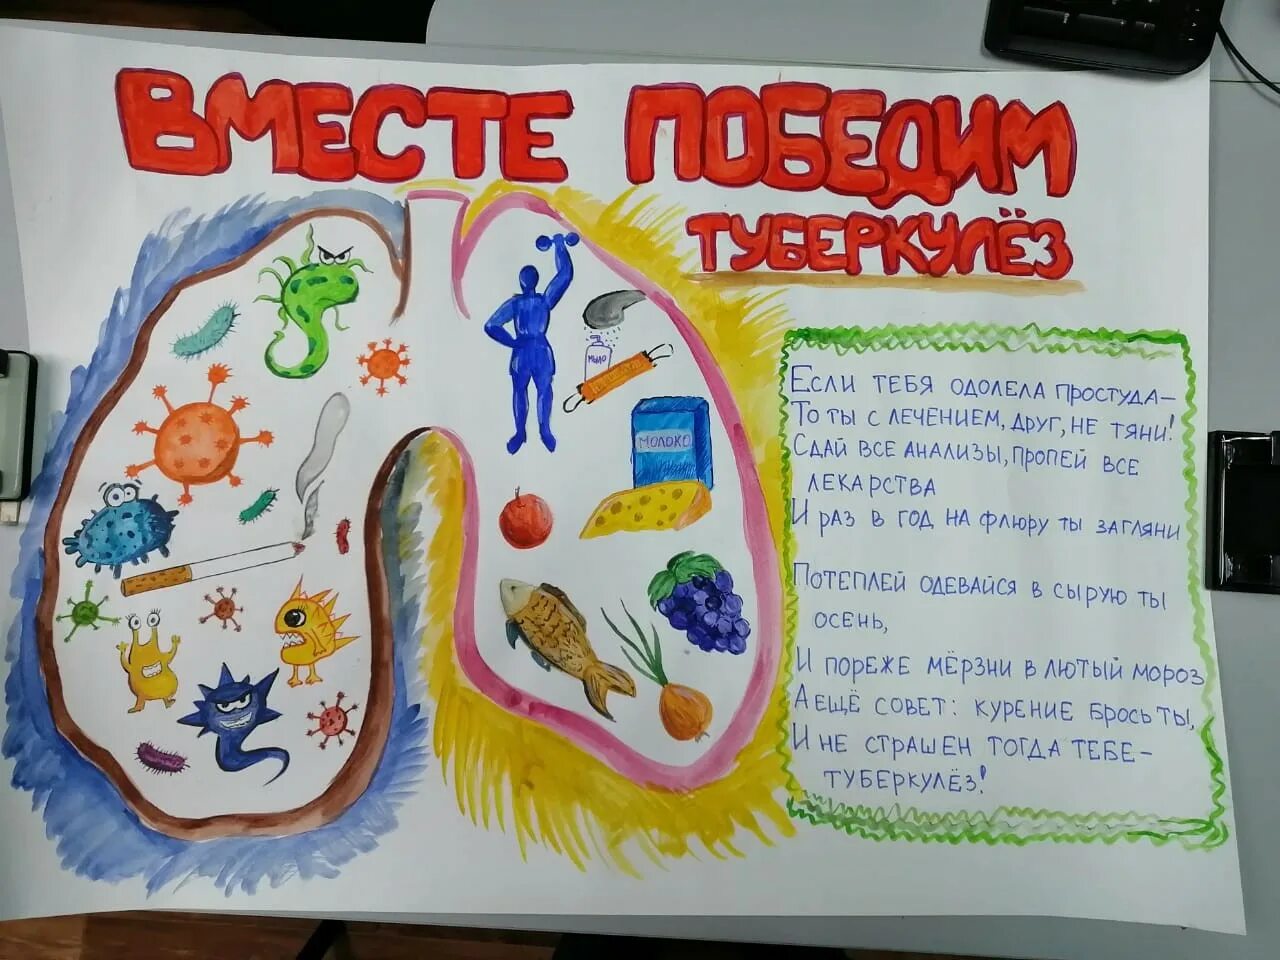 ВМЕСТЕ ПОБЕДИМ
ТУБЕРКУЛЁЗ
МЫЛО
МОЛОКО
ЕСЛИ ТЕБЯ ОДОЛЕЛА ПРОСТУДА–
ТО ТЫ С ЛЕЧЕНИЕМ, ДРУГ, НЕ ТЯНИ!
СДАЙ ВСЕ АНАЛИЗЫ, ПРОПЕЙ ВСЕ
ЛЕКАРСТВА
И РАЗ В ГОД НА ФЛЮРУ ТЫ ЗАГЛЯНИ
ПОТЕПЛЕЙ ОДЕВАЙСЯ В СЫРУЮ ТЫ
ОСЕНЬ,
И ПОРЕЖЕ МЁРЗНИ В ЛЮТЫЙ МОРОЗ
А ЕЩЁ СОВЕТ: КУРЕНИЕ БРОСЬ ТЫ,
И НЕ СТРАШЕН ТОГДА ТЕБЕ–
ТУБЕРКУЛЁЗ!